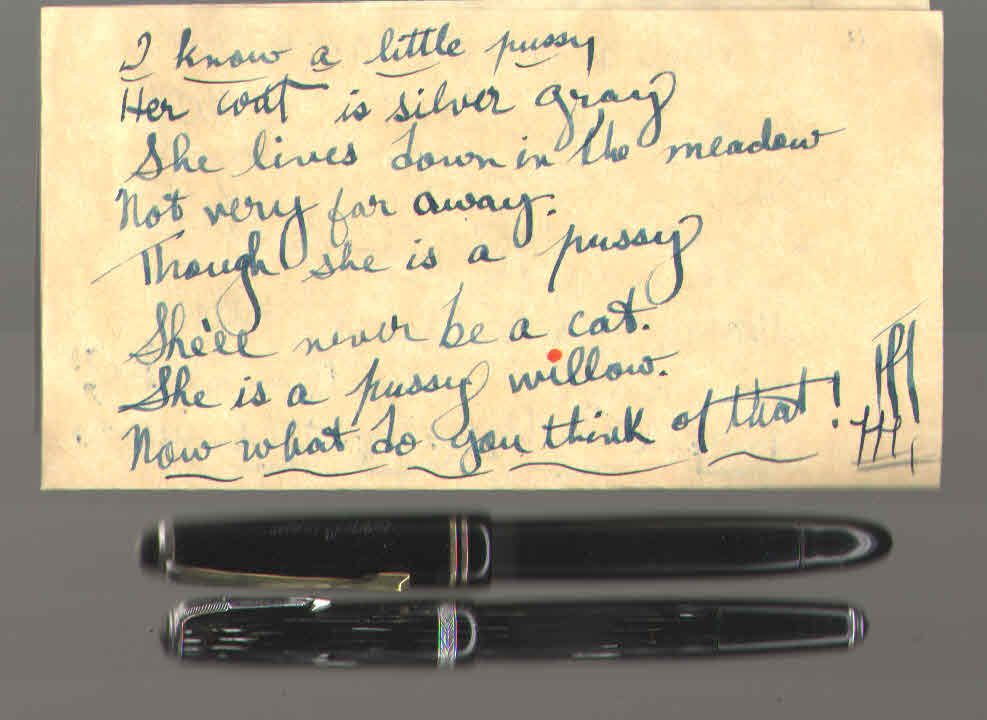 I know a little pussy
Her coat is silver gray
She lives down in the meadow
Not very far away.
Though she is a pussy
She'll never be a cat.
She is a pussy willow.
Now what do you think of that!